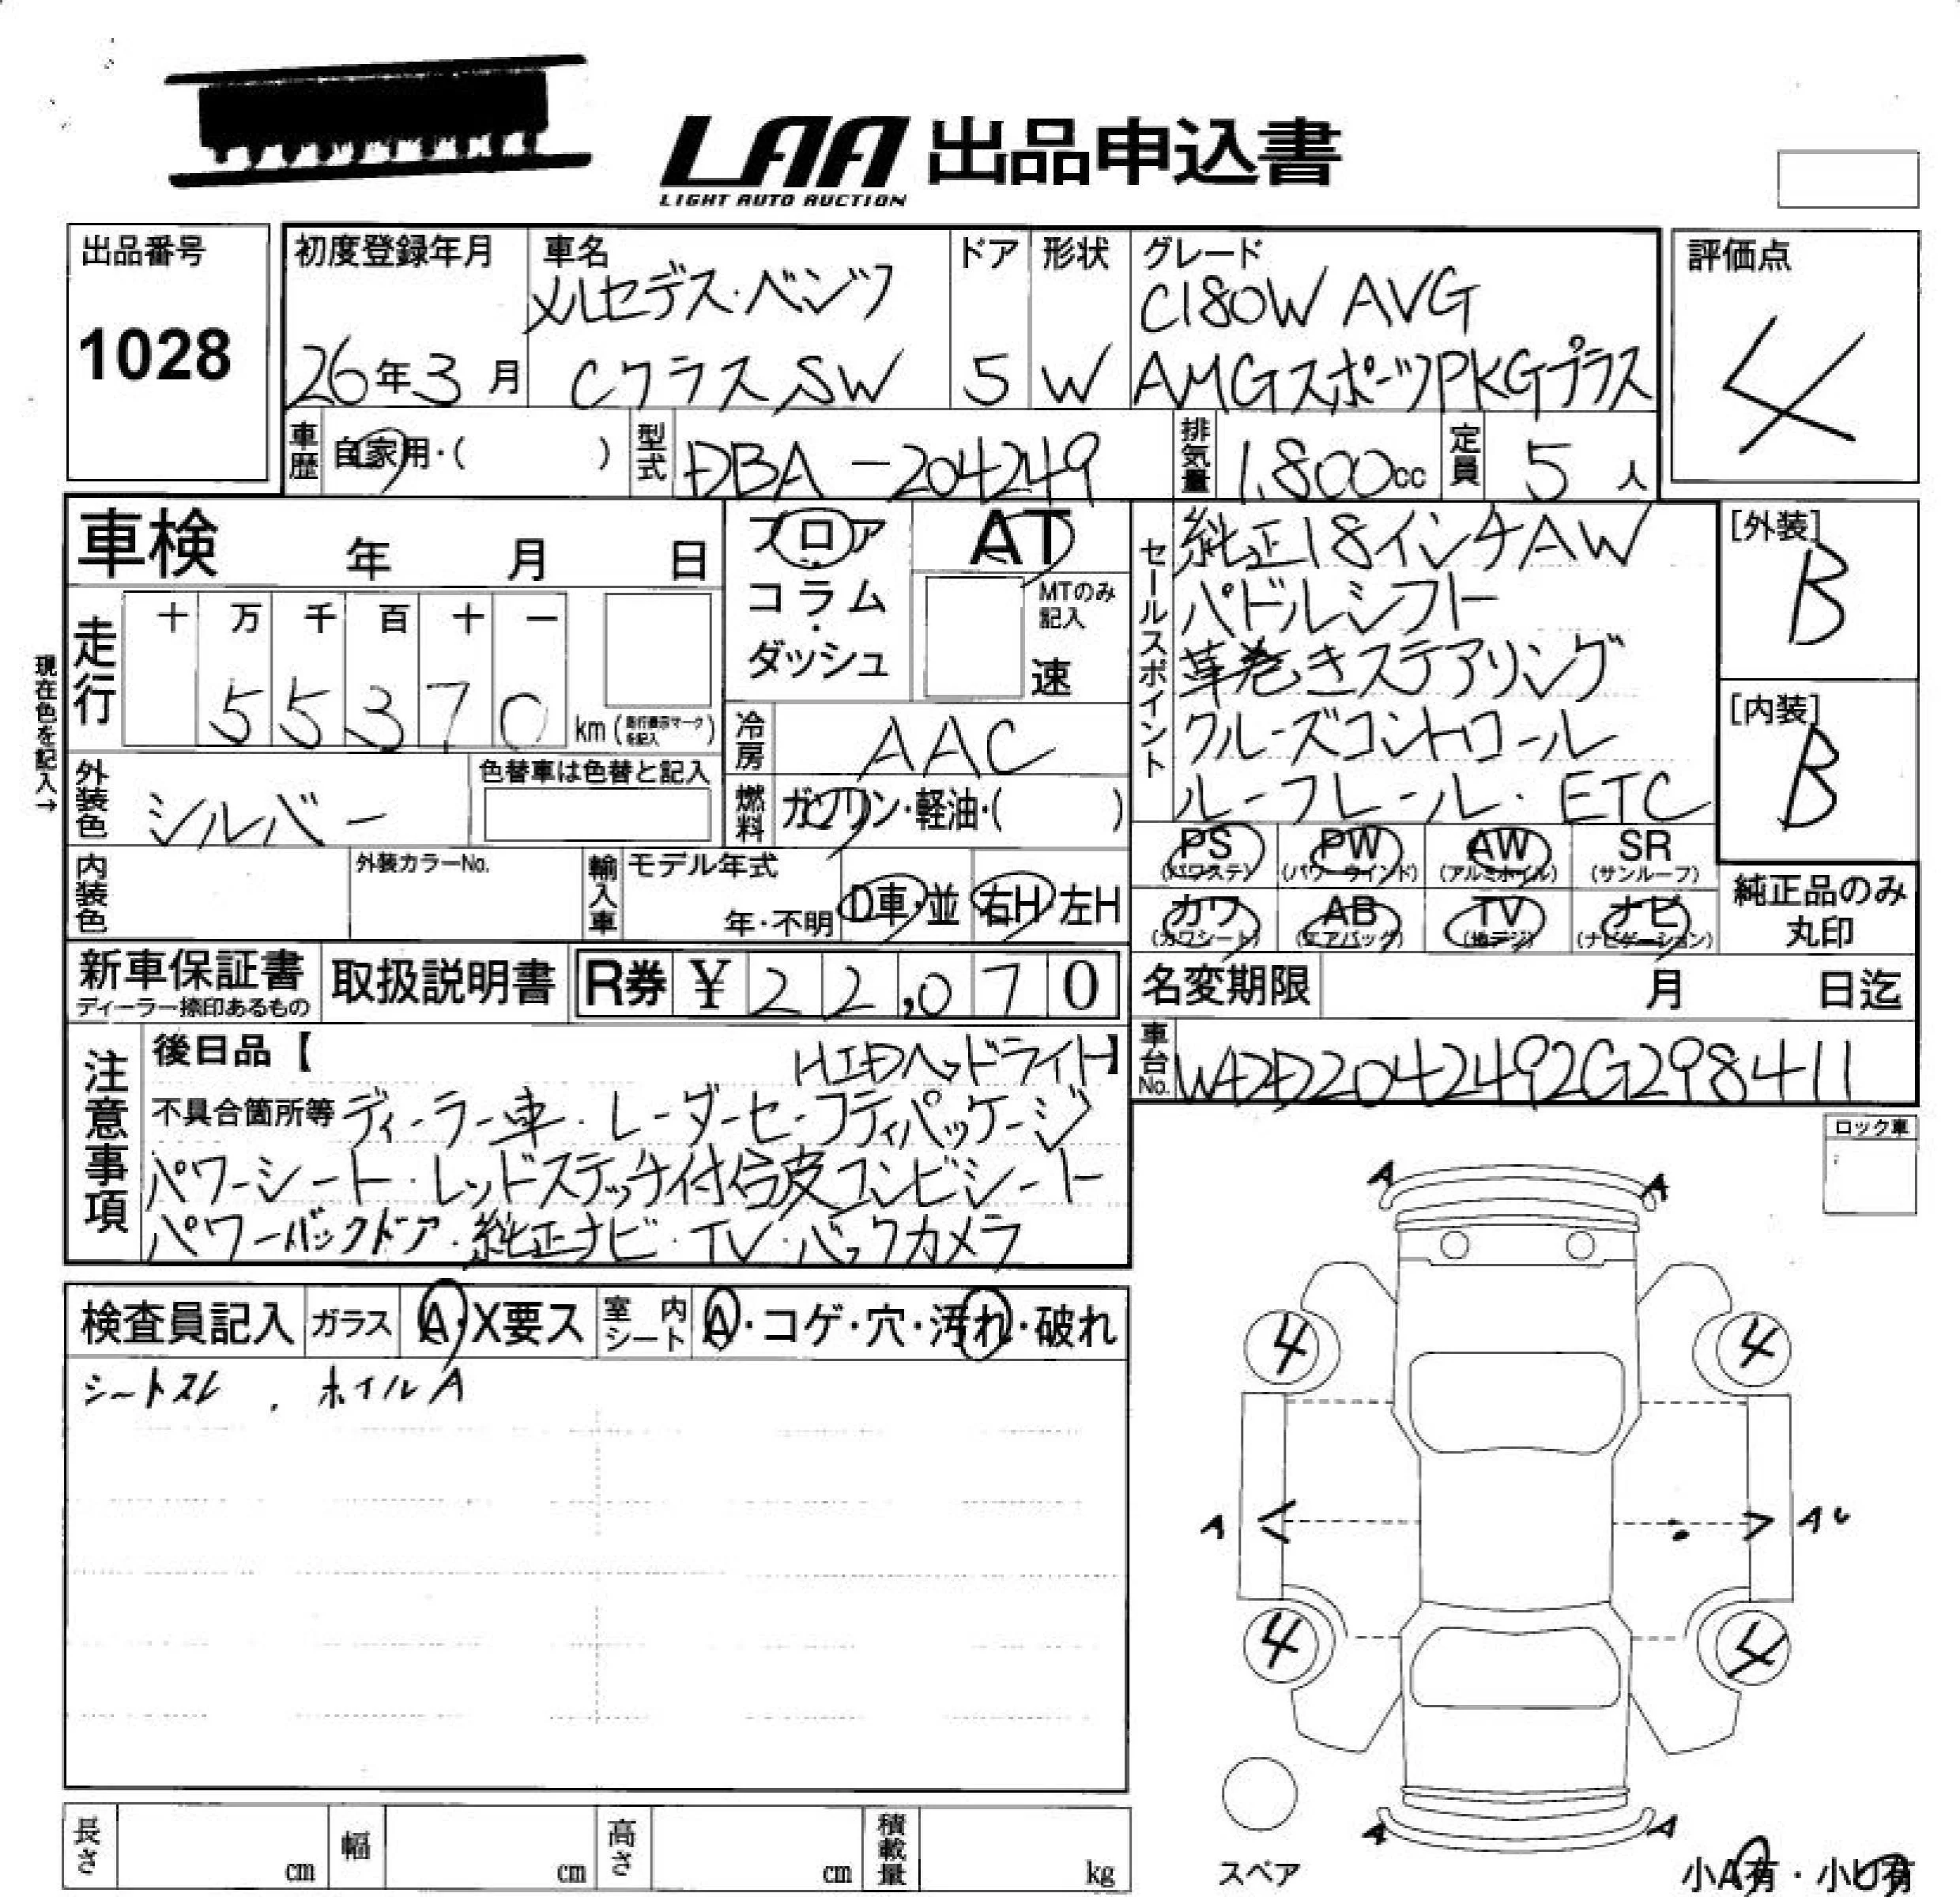 LAA 出品申込書
LIGHT AUTO AUCTION
出品番号
1028
初度登録年月
26年3月
車名
メルセデス・ベンツ
Cクラス SW
ドア
5
形状
W
グレード
C180W AVG
AMGスポーツPKGプラス
評価点
4
車歴
自家用・( )
型式
DBA-204249
排気量
1.800cc
定員
5人
車検 年 月 日
現在色を記入→
走行
十 万 千 百 十 一
55370
km (走行表示マークを記入)
フロア
コラム
・
ダッシュ
AT
MTのみ
記入
速
冷房
AAC
燃料
ガソリン・軽油・( )
外装色
シルバー
色替車は色替と記入
内装色
外装カラーNo.
輸入車
モデル年式
年・不明
D車・並
右H 左H
セールスポイント
純正18インチAW
パドルシフト
革巻きステアリング
クルーズコントロール
ルーフレール・ETC
[外装]
B
[内装]
B
PS
(パワステ)
PW
(パワーウインド)
AW
(アルミホイル)
SR
(サンルーフ)
カワ
(カワシート)
AB
(エアバッグ)
TV
(地デジ)
ナビ
(ナビゲーション)
純正品のみ
丸印
新車保証書
ディーラー捺印あるもの
取扱説明書
R券 ¥22,070
名変期限 月 日迄
車台No.
WDD2042492G298411
注意事項
後日品【 HIDヘッドライト】
不具合箇所等 ディーラー車・レーダーセーフティパッケージ
パワーシート・レッドステッチ付合皮コンビシート
パワーバックドア・純正ナビ・TV・バックカメラ
ロック車
検査員記入 ガラス A・X要ス 室内シート A・コゲ・穴・汚れ・破れ
シートスレ、ホイルA
A A
4 4
A A
4 4
スペア
A A
小A有・小U有
長さ cm
幅 cm
高さ cm
積載量 kg